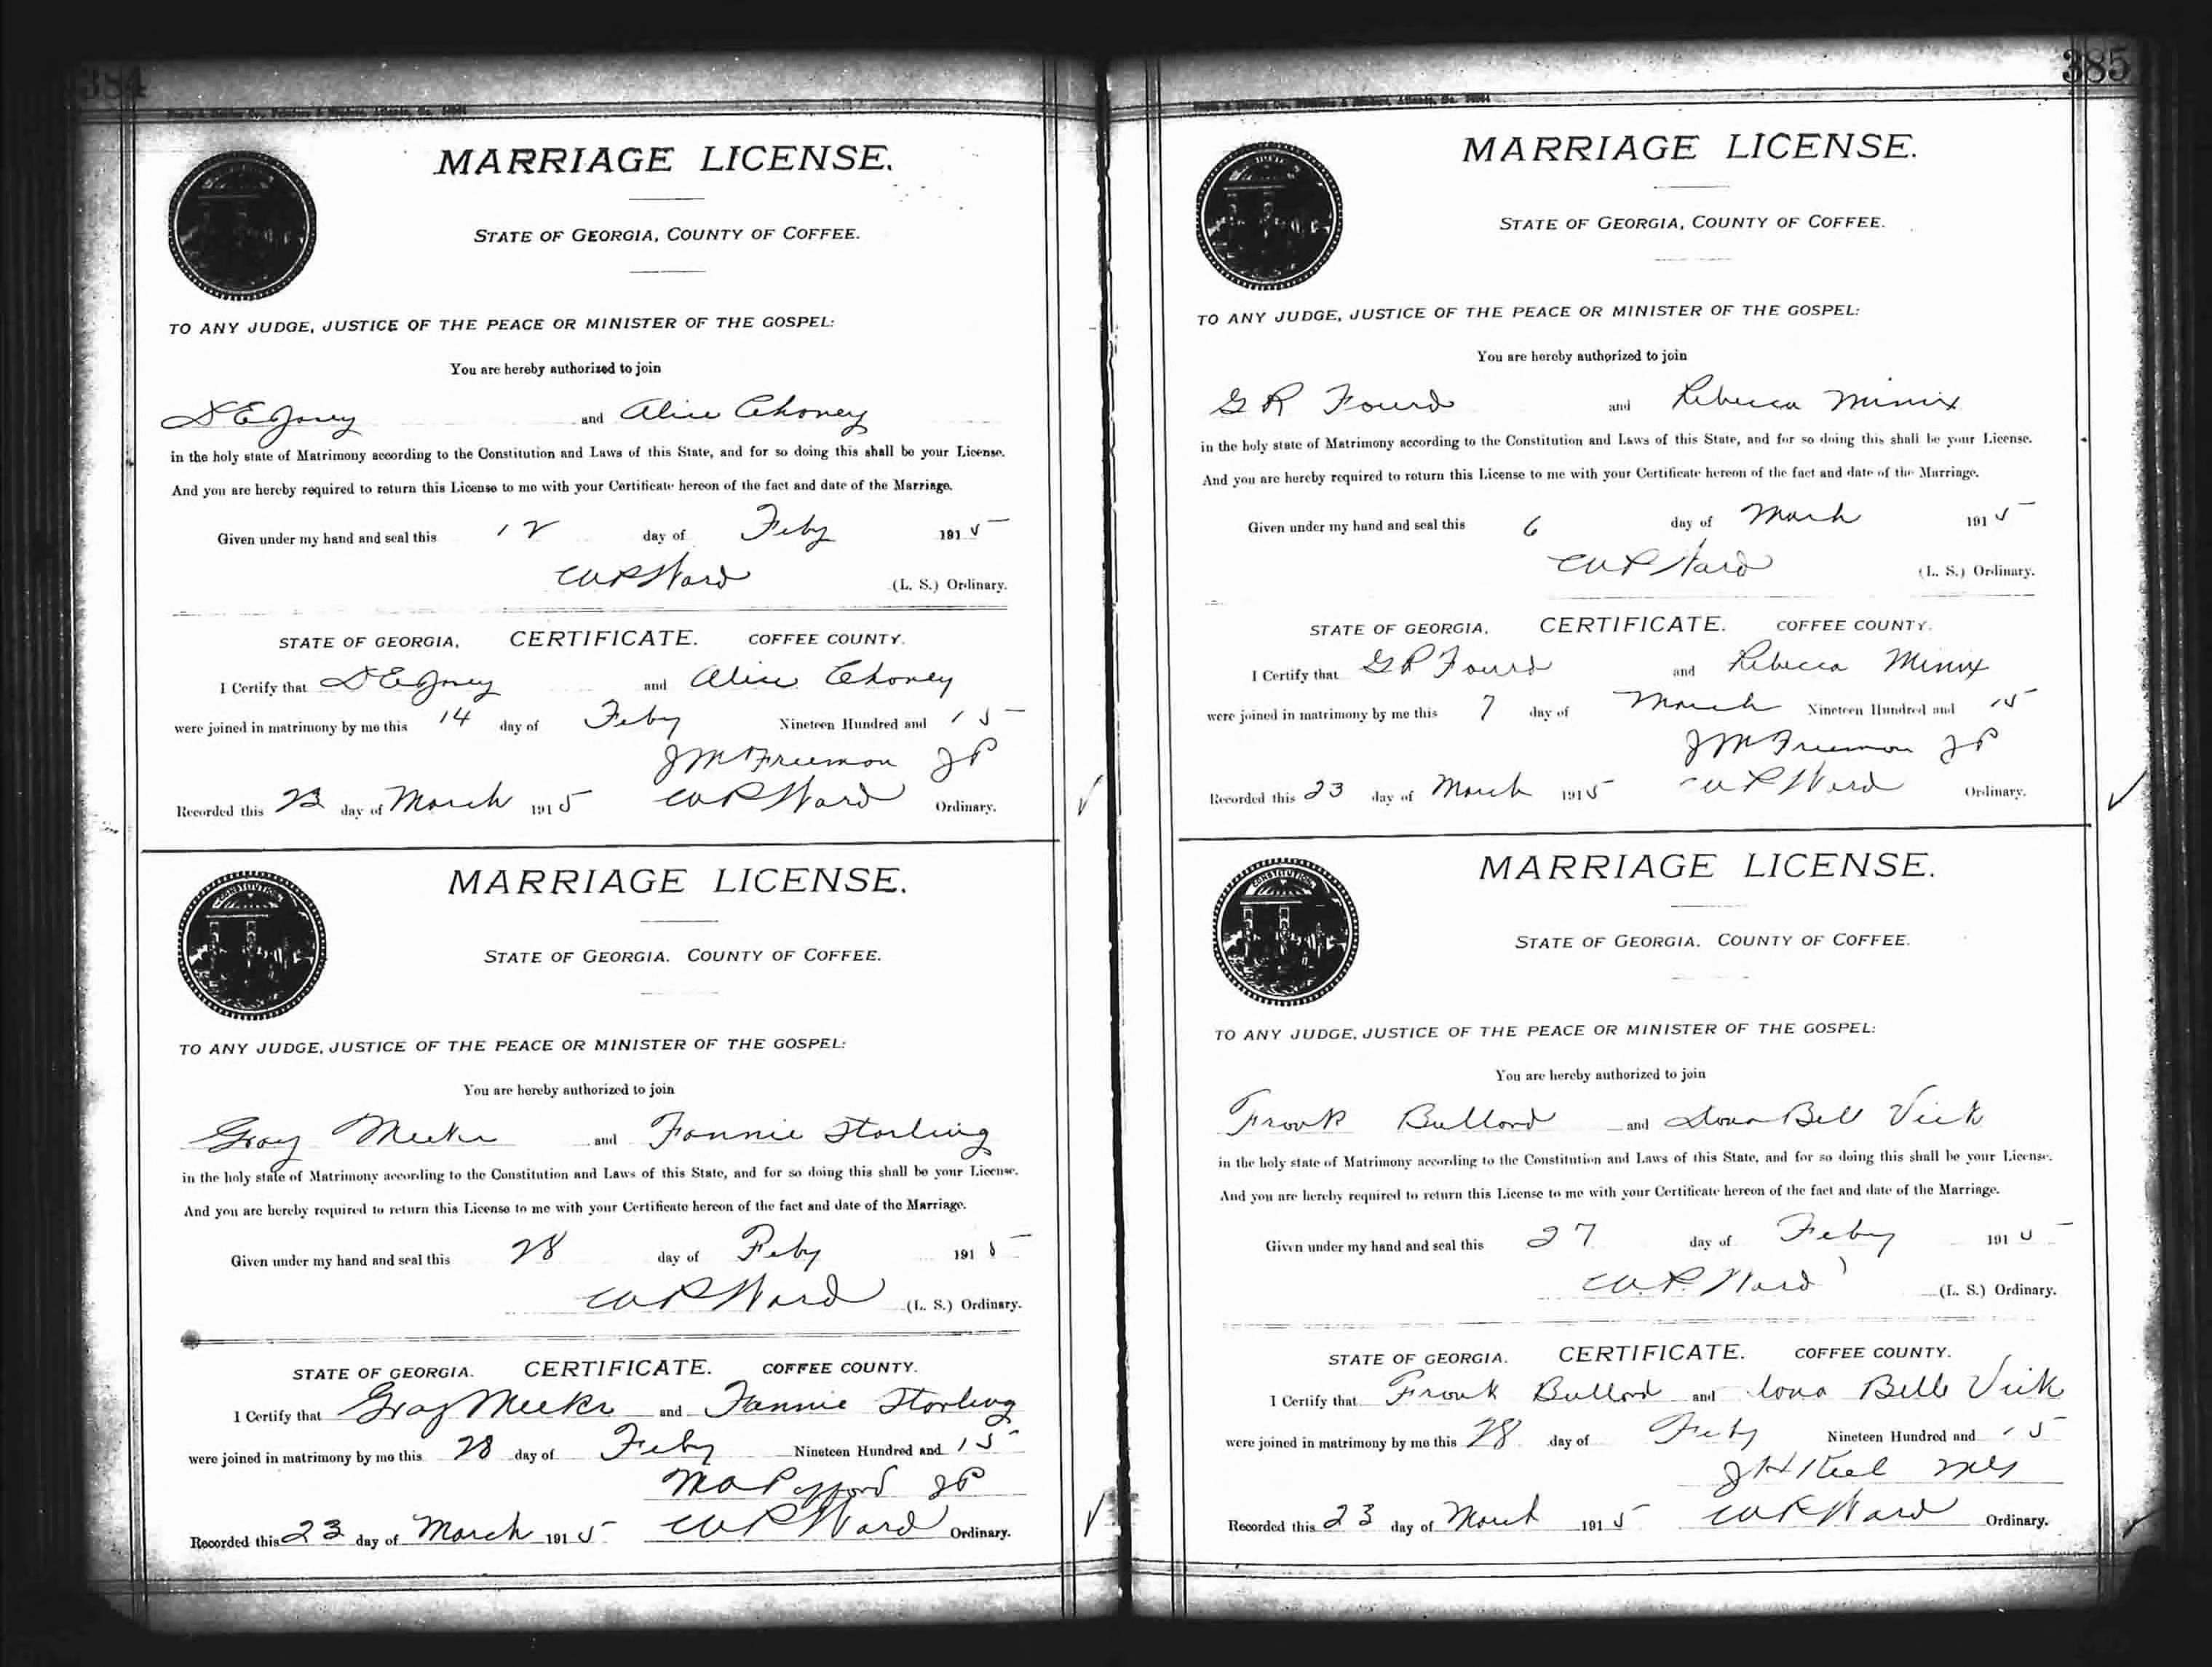 384
MARRIAGE LICENSE.
STATE OF GEORGIA, COUNTY OF COFFEE.
TO ANY JUDGE, JUSTICE OF THE PEACE OR MINISTER OF THE GOSPEL:
You are hereby authorized to join
D E Jorey and Alice Choney
in the holy state of Matrimony according to the Constitution and Laws of this State, and for so doing this shall be your License.
And you are hereby required to return this License to me with your Certificate hereon of the fact and date of the Marriage.
Given under my hand and seal this 12 day of Feby 1915
W P Ward (L. S.) Ordinary.
STATE OF GEORGIA, CERTIFICATE. COFFEE COUNTY.
I Certify that D E Jorey and Alice Choney
were joined in matrimony by me this 14 day of Feby Nineteen Hundred and 15
J M Freeman J P
Recorded this 23 day of March 1915 W P Ward Ordinary.
CONSTITUTION
MARRIAGE LICENSE.
STATE OF GEORGIA. COUNTY OF COFFEE.
TO ANY JUDGE, JUSTICE OF THE PEACE OR MINISTER OF THE GOSPEL:
You are hereby authorized to join
Gray Meeks and Fannie Starling
in the holy state of Matrimony according to the Constitution and Laws of this State, and for so doing this shall be your License.
And you are hereby required to return this License to me with your Certificate hereon of the fact and date of the Marriage.
Given under my hand and seal this 28 day of Feby 1915
W P Ward (L. S.) Ordinary.
STATE OF GEORGIA. CERTIFICATE. COFFEE COUNTY.
I Certify that Gray Meeks and Fannie Starling
were joined in matrimony by me this 28 day of Feby Nineteen Hundred and 15
M A Pafford J P
Recorded this 23 day of March 1915 W P Ward Ordinary.
385
MARRIAGE LICENSE.
STATE OF GEORGIA, COUNTY OF COFFEE.
TO ANY JUDGE, JUSTICE OF THE PEACE OR MINISTER OF THE GOSPEL:
You are hereby authorized to join
G R Fourd and Rebecca Minix
in the holy state of Matrimony according to the Constitution and Laws of this State, and for so doing this shall be your License.
And you are hereby required to return this License to me with your Certificate hereon of the fact and date of the Marriage.
Given under my hand and seal this 6 day of March 1915
W P Ward (L. S.) Ordinary.
STATE OF GEORGIA, CERTIFICATE. COFFEE COUNTY.
I Certify that G R Fourd and Rebecca Minix
were joined in matrimony by me this 7 day of March Nineteen Hundred and 15
J M Freeman J P
Recorded this 23 day of March 1915 W P Ward Ordinary.
CONSTITUTION
MARRIAGE LICENSE.
STATE OF GEORGIA. COUNTY OF COFFEE.
TO ANY JUDGE, JUSTICE OF THE PEACE OR MINISTER OF THE GOSPEL:
You are hereby authorized to join
Frank Bullard and Iona Bell Vick
in the holy state of Matrimony according to the Constitution and Laws of this State, and for so doing this shall be your License.
And you are hereby required to return this License to me with your Certificate hereon of the fact and date of the Marriage.
Given under my hand and seal this 27 day of Feby 1915
W. P. Ward (L. S.) Ordinary.
STATE OF GEORGIA. CERTIFICATE. COFFEE COUNTY.
I Certify that Frank Bullard and Iona Belle Vick
were joined in matrimony by me this 28 day of Feby Nineteen Hundred and 15
J H Keel
Recorded this 23 day of March 1915 W P Ward Ordinary.